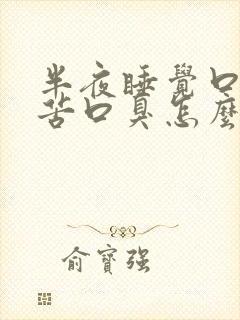 半夜睡覺口
苦口臭怎麼
俞寶強